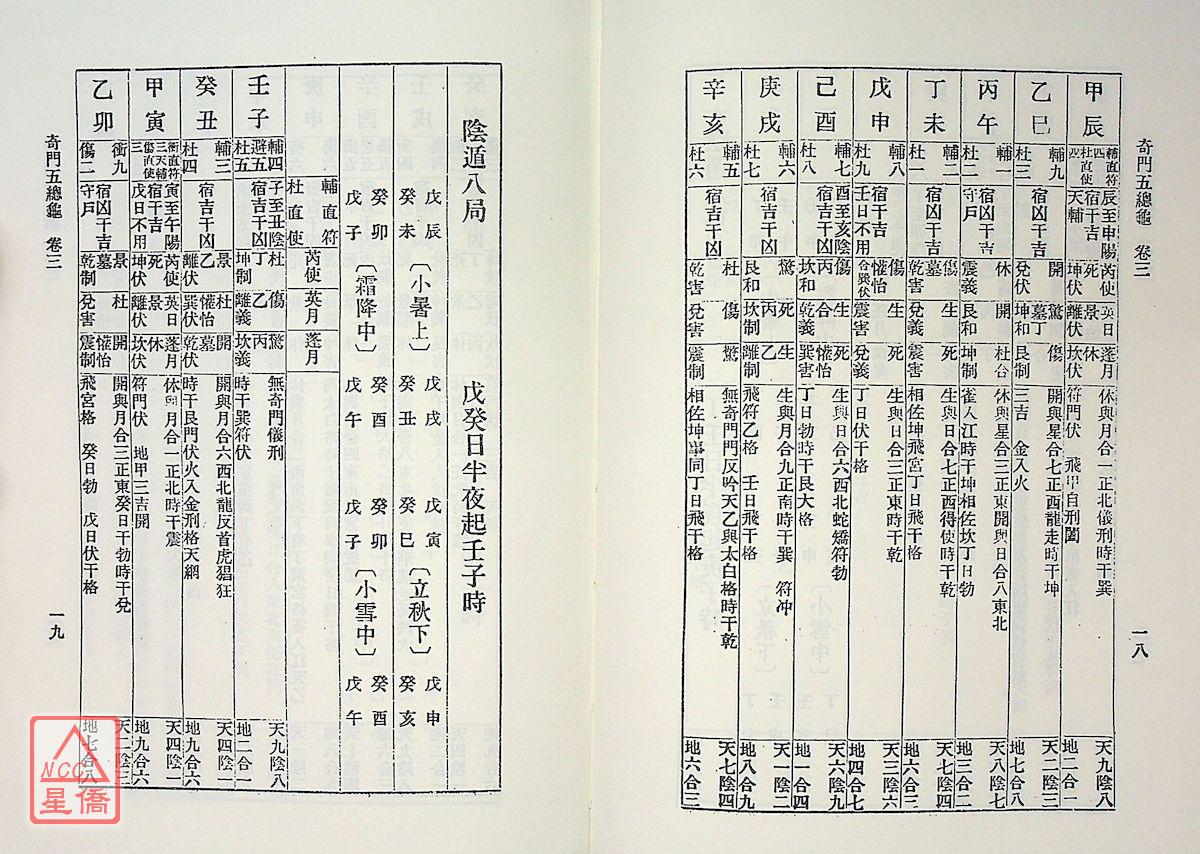 奇門五總龜 卷三
一八
甲辰
輔直符四
杜直使四
辰至申陽
宿干吉
天輔
芮使 英日 蓬月
死 景 休
坤伏 離伏 坎伏
休與月合一正北儀刑時干巽
符門伏 飛甲自刑闔
天九陰八
地二合一
乙巳
輔九
杜三
宿凶干吉
開 驚 傷
墓丁
兌伏 坤和 艮制
開與星合七正西龍走時干坤
三吉 金入火
天二陰三
地七合八
丙午
輔一
杜二
宿凶干吉
守戶
休 開 杜合
震義 艮和 坤制
休與星合三正東開與日合八東北
雀入江時干坤相佐坎丁日勃
天八陰七
地三合二
丁未
輔二
杜一
宿凶干吉
傷 生 死
墓
乾害 兌義 震害
生與日合七正西得使時干乾
相佐坤飛宮丁日飛干格
天七陰四
地六合三
戊申
輔八
杜九
宿干吉
壬日不用
傷 生 死
懽怡
合巽伏 震害 兌義
生與日合三正東時干乾
丁日伏干格
天三陰六
地四合七
己酉
輔七
杜八
酉至亥陰
宿吉干凶
傷 生 死
丙 合 懽怡
坎和 乾義 巽害
生與日合六西北蛇矯符勃
丁日勃時干艮大格
天六陰九
地一合四
庚戌
輔六
杜七
宿吉干凶
驚 死 生
丙 乙
艮和 坎制 離制
生與月合九正南時干巽 符冲
飛符乙格 壬日飛干格
天一陰二
地八合九
辛亥
輔五
杜六
宿吉干凶
杜 傷 驚
乾害 兌害 震制
無奇門門反吟天乙與太白格時干乾
相佐坤事同丁日飛干格
天七陰四
地六合三
陰遁八局 戊癸日半夜起壬子時
戊辰 戊戌 戊寅 戊申
癸未〔小暑上〕癸丑 癸巳〔立秋下〕癸亥
癸卯 癸酉 癸卯 癸酉
戊子〔霜降中〕戊午 戊子〔小雪中〕戊午
輔直符
杜直使
芮使 英月 蓬月
壬子
輔四
避五
杜五
子至丑陰
宿吉干凶
杜 傷 驚
丁 乙 丙
坤制 離義 坎義
無奇門儀刑
時干巽符伏
天九陰八
地二合一
癸丑
輔三
杜四
宿吉干凶
景 杜 開
乙 懽怡 墓
離伏 巽伏 乾伏
開與月合六西北龍反首虎猖狂
時干艮門伏火入金刑格天網
天四陰一
地九合六
甲寅
衝直符三天輔
傷直使三
寅至午陽
宿干吉
戊日不用
芮使 英日 蓬月
死 景 休
坤伏 離伏 坎伏
休與月合一正北時干震
符門伏 地甲三吉開
天四陰一
地九合六
乙卯
衝九
傷二
宿凶干吉
守戶
景 杜 開
墓 懽怡
乾制 兌害 震制
開與月合三正東癸日干勃時干兌
飛宮格 癸日勃 戊日伏干格
天二陰三
地七合八
奇門五總龜 卷三
一九
NCC
星僑